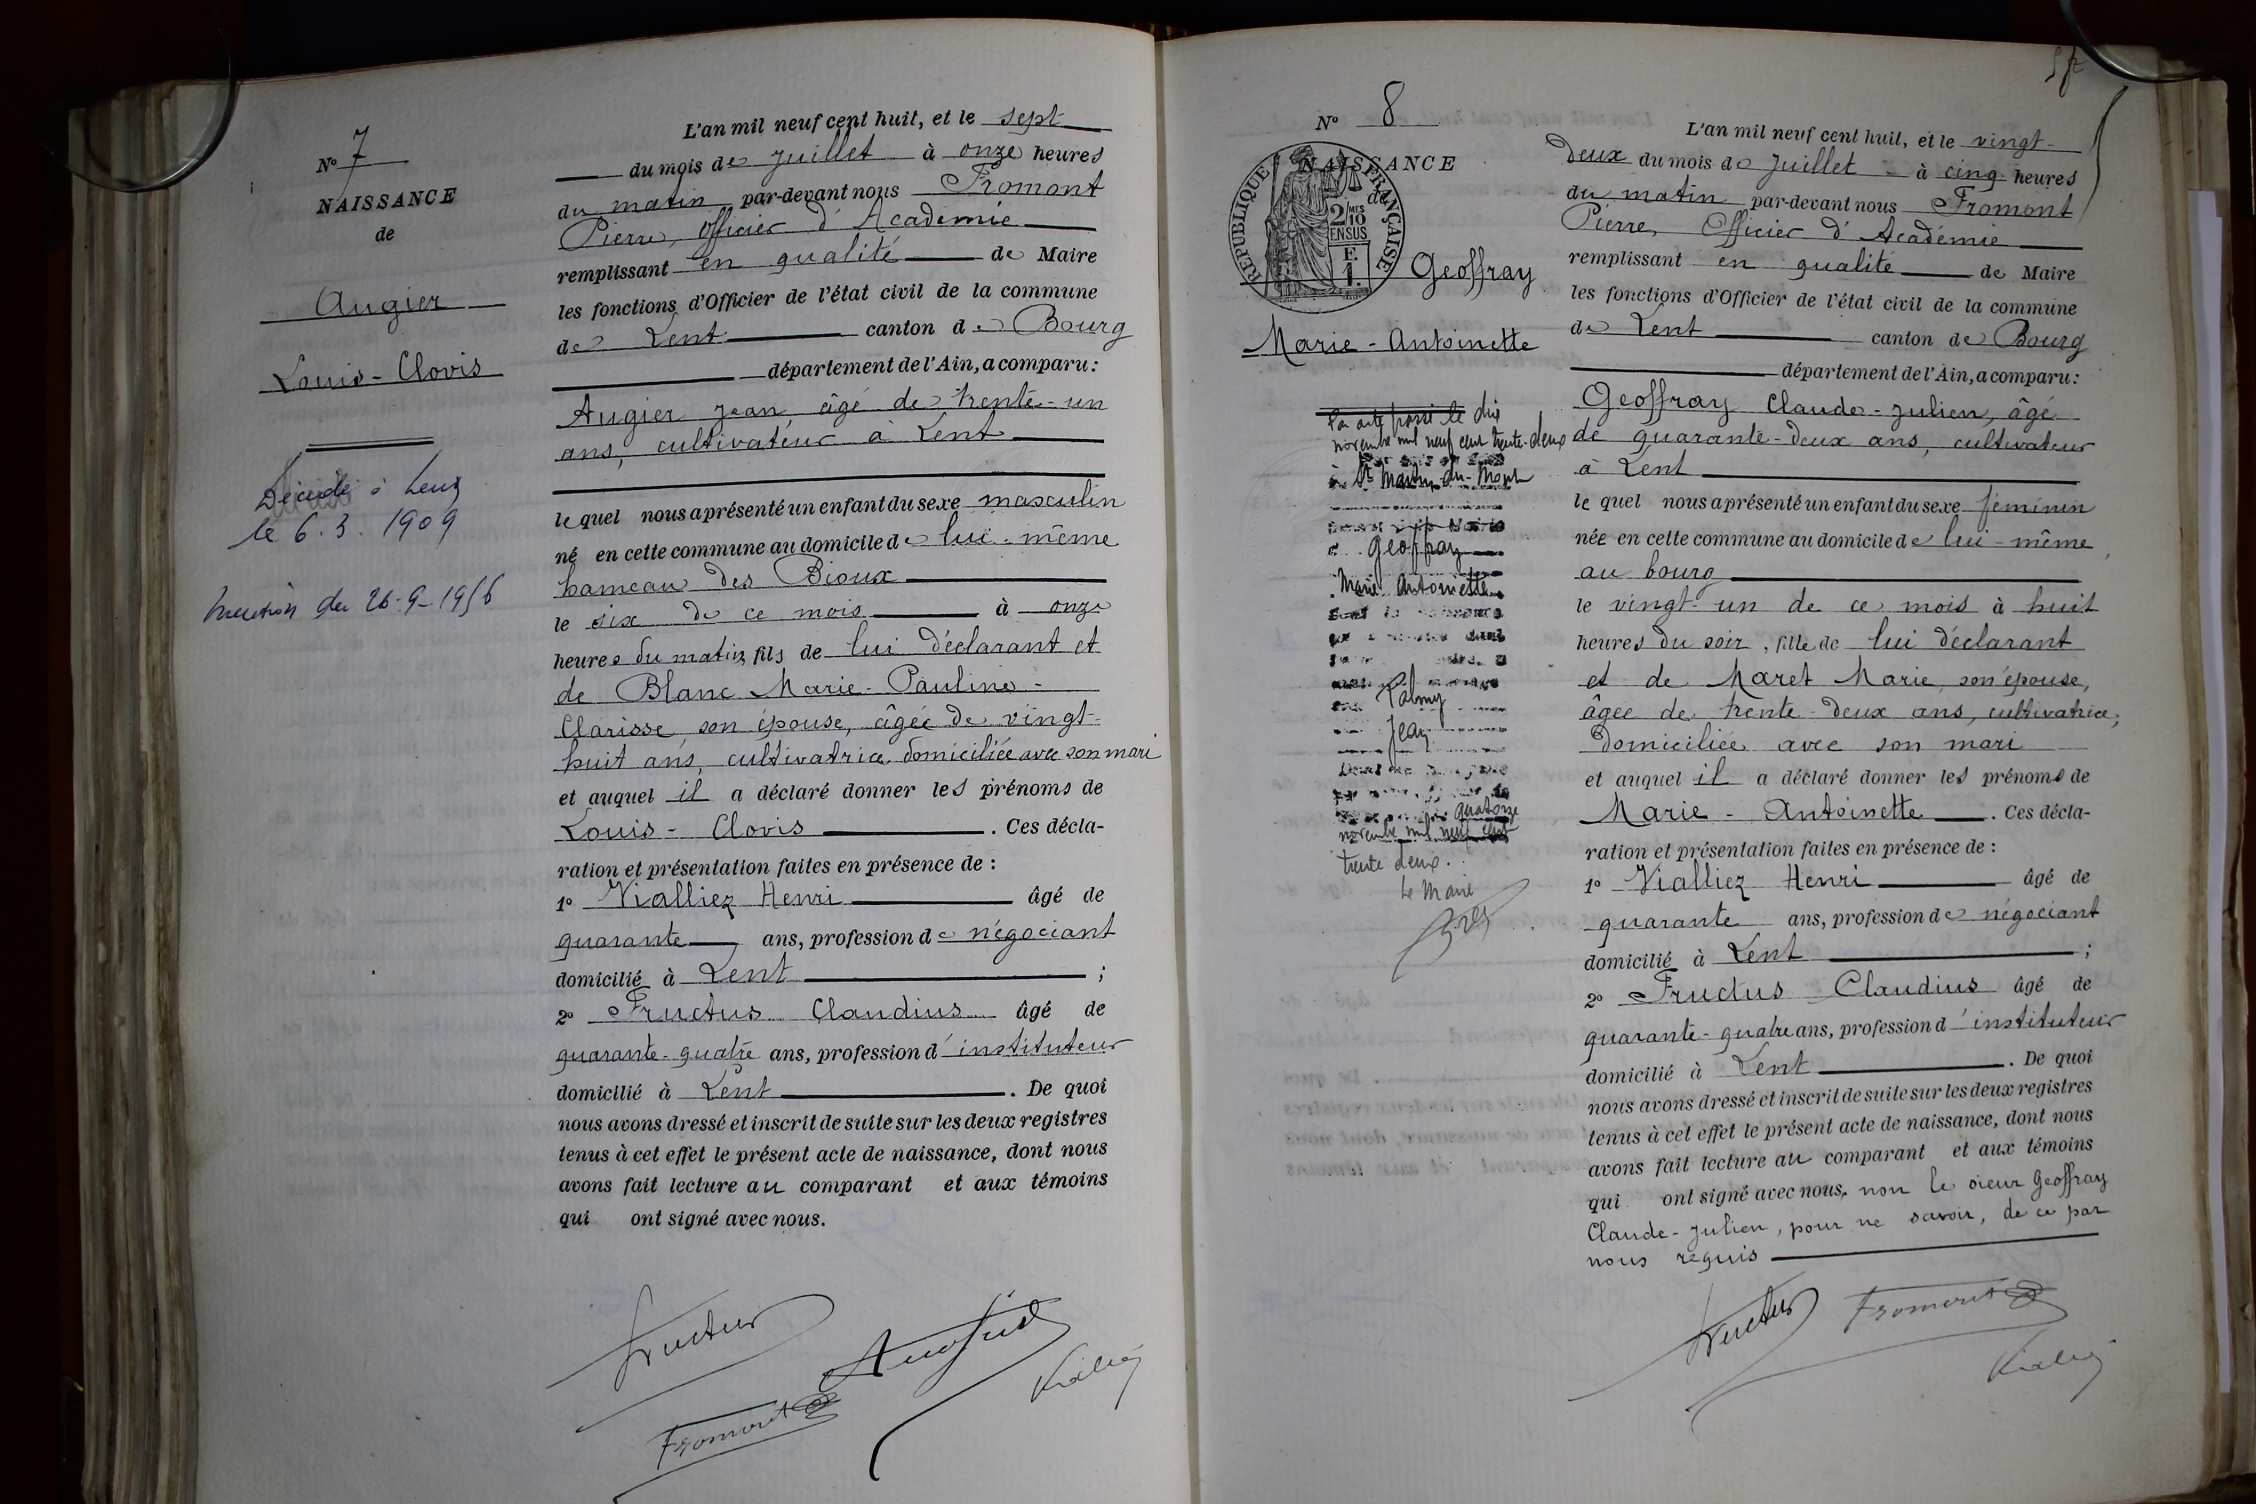 N° 7
NAISSANCE
de
Augier
Louis-Clovis
Décédé à Lent
le 6.3.1909
Mention du 26-9-1956
L'an mil neuf cent huit, et le sept
du mois de Juillet à onze heures
du matin par-devant nous Fromont
Pierre, Officier d'Académie
remplissant en qualité de Maire
les fonctions d'Officier de l'état civil de la commune
de Lent canton de Bourg
département de l'Ain, a comparu:
Augier Jean âgé de trente-un
ans, cultivateur à Lent
le quel nous a présenté un enfant du sexe masculin
né en cette commune au domicile de lui-même
hameau des Bioux
le six de ce mois à onze
heures du matin, fils de lui déclarant et
de Blanc Marie-Pauline-
Clarisse son épouse, âgée de vingt-
huit ans, cultivatrice domiciliée avec son mari
et auquel il a déclaré donner les prénoms de
Louis-Clovis. Ces décla-
ration et présentation faites en présence de :
1° Vialliez Henri âgé de
quarante ans, profession de négociant
domicilié à Lent ;
2° Fructus Claudius âgé de
quarante-quatre ans, profession d'instituteur
domicilié à Lent. De quoi
nous avons dressé et inscrit de suite sur les deux registres
tenus à cet effet le présent acte de naissance, dont nous
avons fait lecture au comparant et aux témoins
qui ont signé avec nous.
Fructus
Fromont
N° 8
NAISSANCE
de
RÉPUBLIQUE FRANÇAISE
2/10 MES
EN SUS
F.
1.
Geoffray
Marie-Antoinette
Par acte passé le dix
novembre mil neuf cent trente-deux
à St Martin-du-Mont
Geoffray
Marie Antoinette
Jean
quatorze
novembre mil neuf cent
trente deux.
Le Maire
L'an mil neuf cent huit, et le vingt-
deux du mois de Juillet à cinq heures
du matin par-devant nous Fromont
Pierre, Officier d'Académie
remplissant en qualité de Maire
les fonctions d'Officier de l'état civil de la commune
de Lent canton de Bourg
département de l'Ain, a comparu:
Geoffray Claude-Julien, âgé
de quarante-deux ans, cultivateur
à Lent
le quel nous a présenté un enfant du sexe féminin
née en cette commune au domicile de lui-même
au bourg
le vingt-un de ce mois à huit
heures du soir, fille de lui déclarant
et de Maret Marie, son épouse,
âgée de trente-deux ans, cultivatrice,
domiciliée avec son mari
et auquel il a déclaré donner les prénoms de
Marie-Antoinette. Ces décla-
ration et présentation faites en présence de :
1° Vialliez Henri âgé de
quarante ans, profession de négociant
domicilié à Lent ;
2° Fructus Claudius âgé de
quarante-quatre ans, profession d'instituteur
domicilié à Lent. De quoi
nous avons dressé et inscrit de suite sur les deux registres
tenus à cet effet le présent acte de naissance, dont nous
avons fait lecture au comparant et aux témoins
qui ont signé avec nous, non le sieur Geoffray
Claude-Julien, pour ne savoir, de ce par
nous requis
Fructus
Fromont